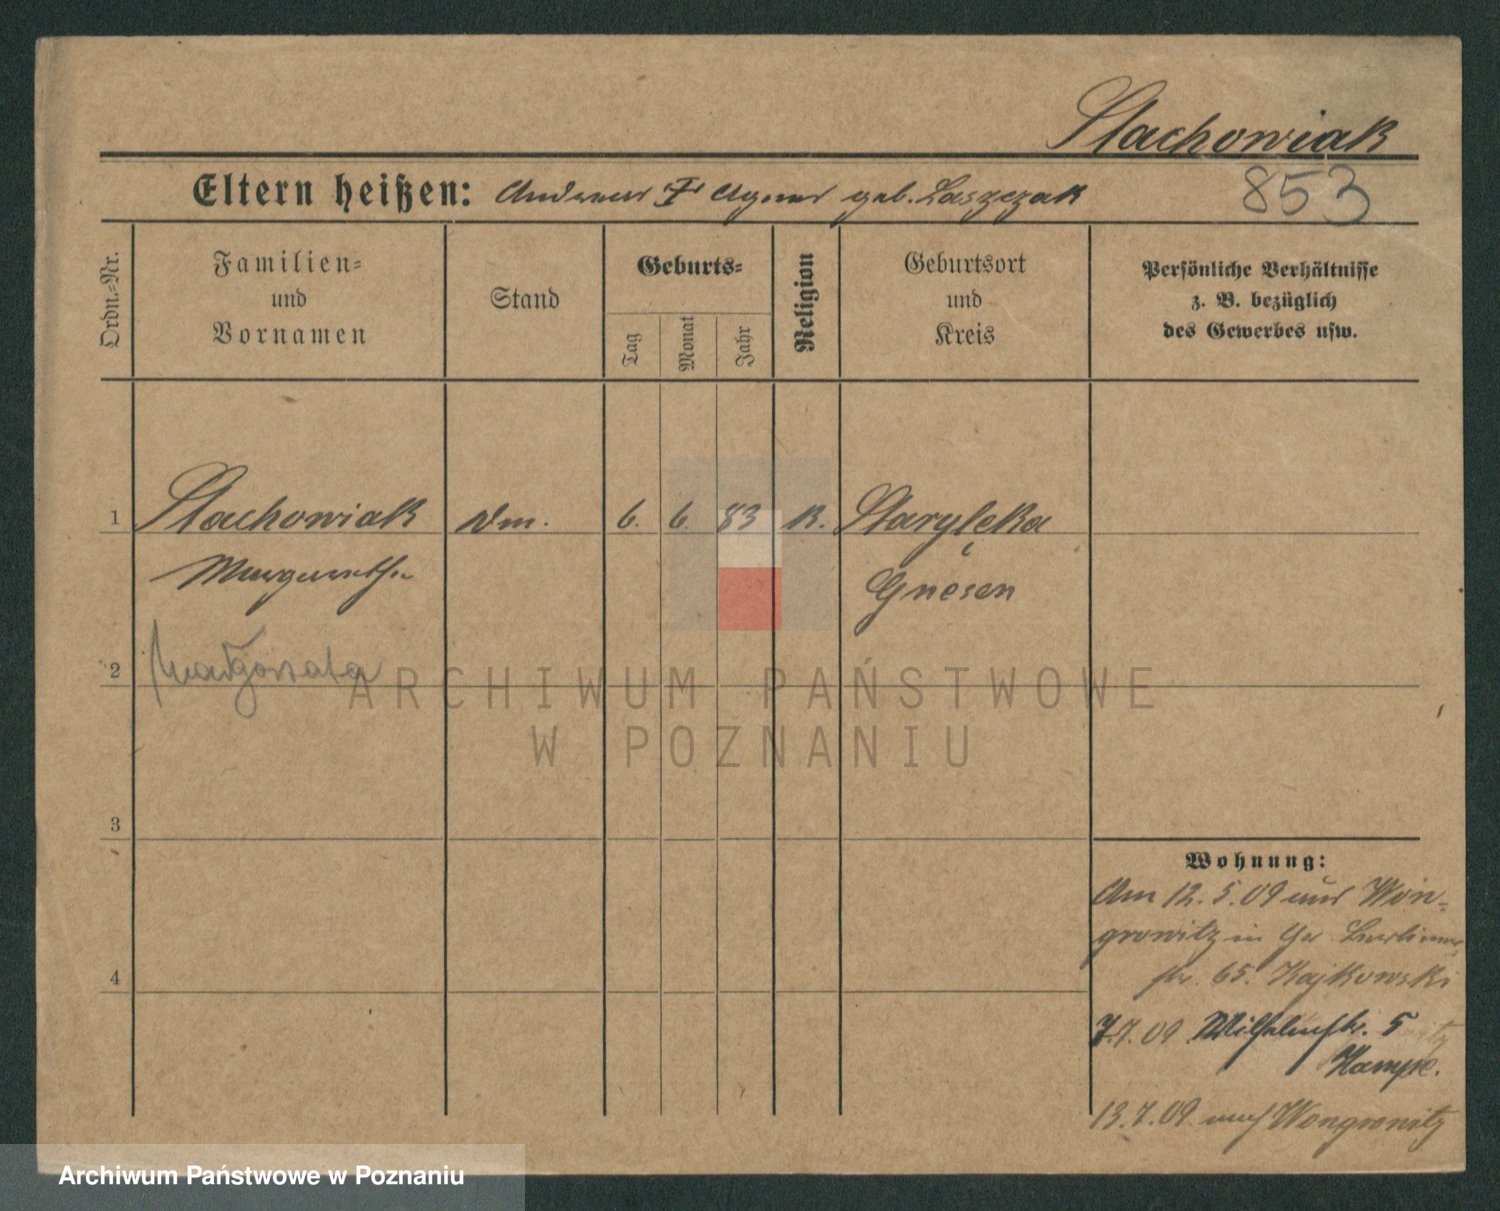 Stachowiak
Eltern heißen: Andreas † Agnes geb. Laszczak
853
Ordn.-Nr.
Familien-
und
Vornamen
Stand
Geburts-
Tag
Monat
Jahr
Religion
Geburtsort
und
Kreis
Persönliche Verhältnisse
z. B. bezüglich
des Gewerbes usw.
1
Stachowiak
Margarethe
Dm.
6.
6.
83
K.
Gnesen
2
Małgorzata
ARCHIWUM PAŃSTWOWE
W POZNANIU
3
4
Wohnung:
Am 12.5.09 aus Won-
growitz in
str. 65. Kajkowski
7.7.09 Wilhelmstr. 5
13.7.09. nach Wongrowitz
Archiwum Państwowe w Poznaniu